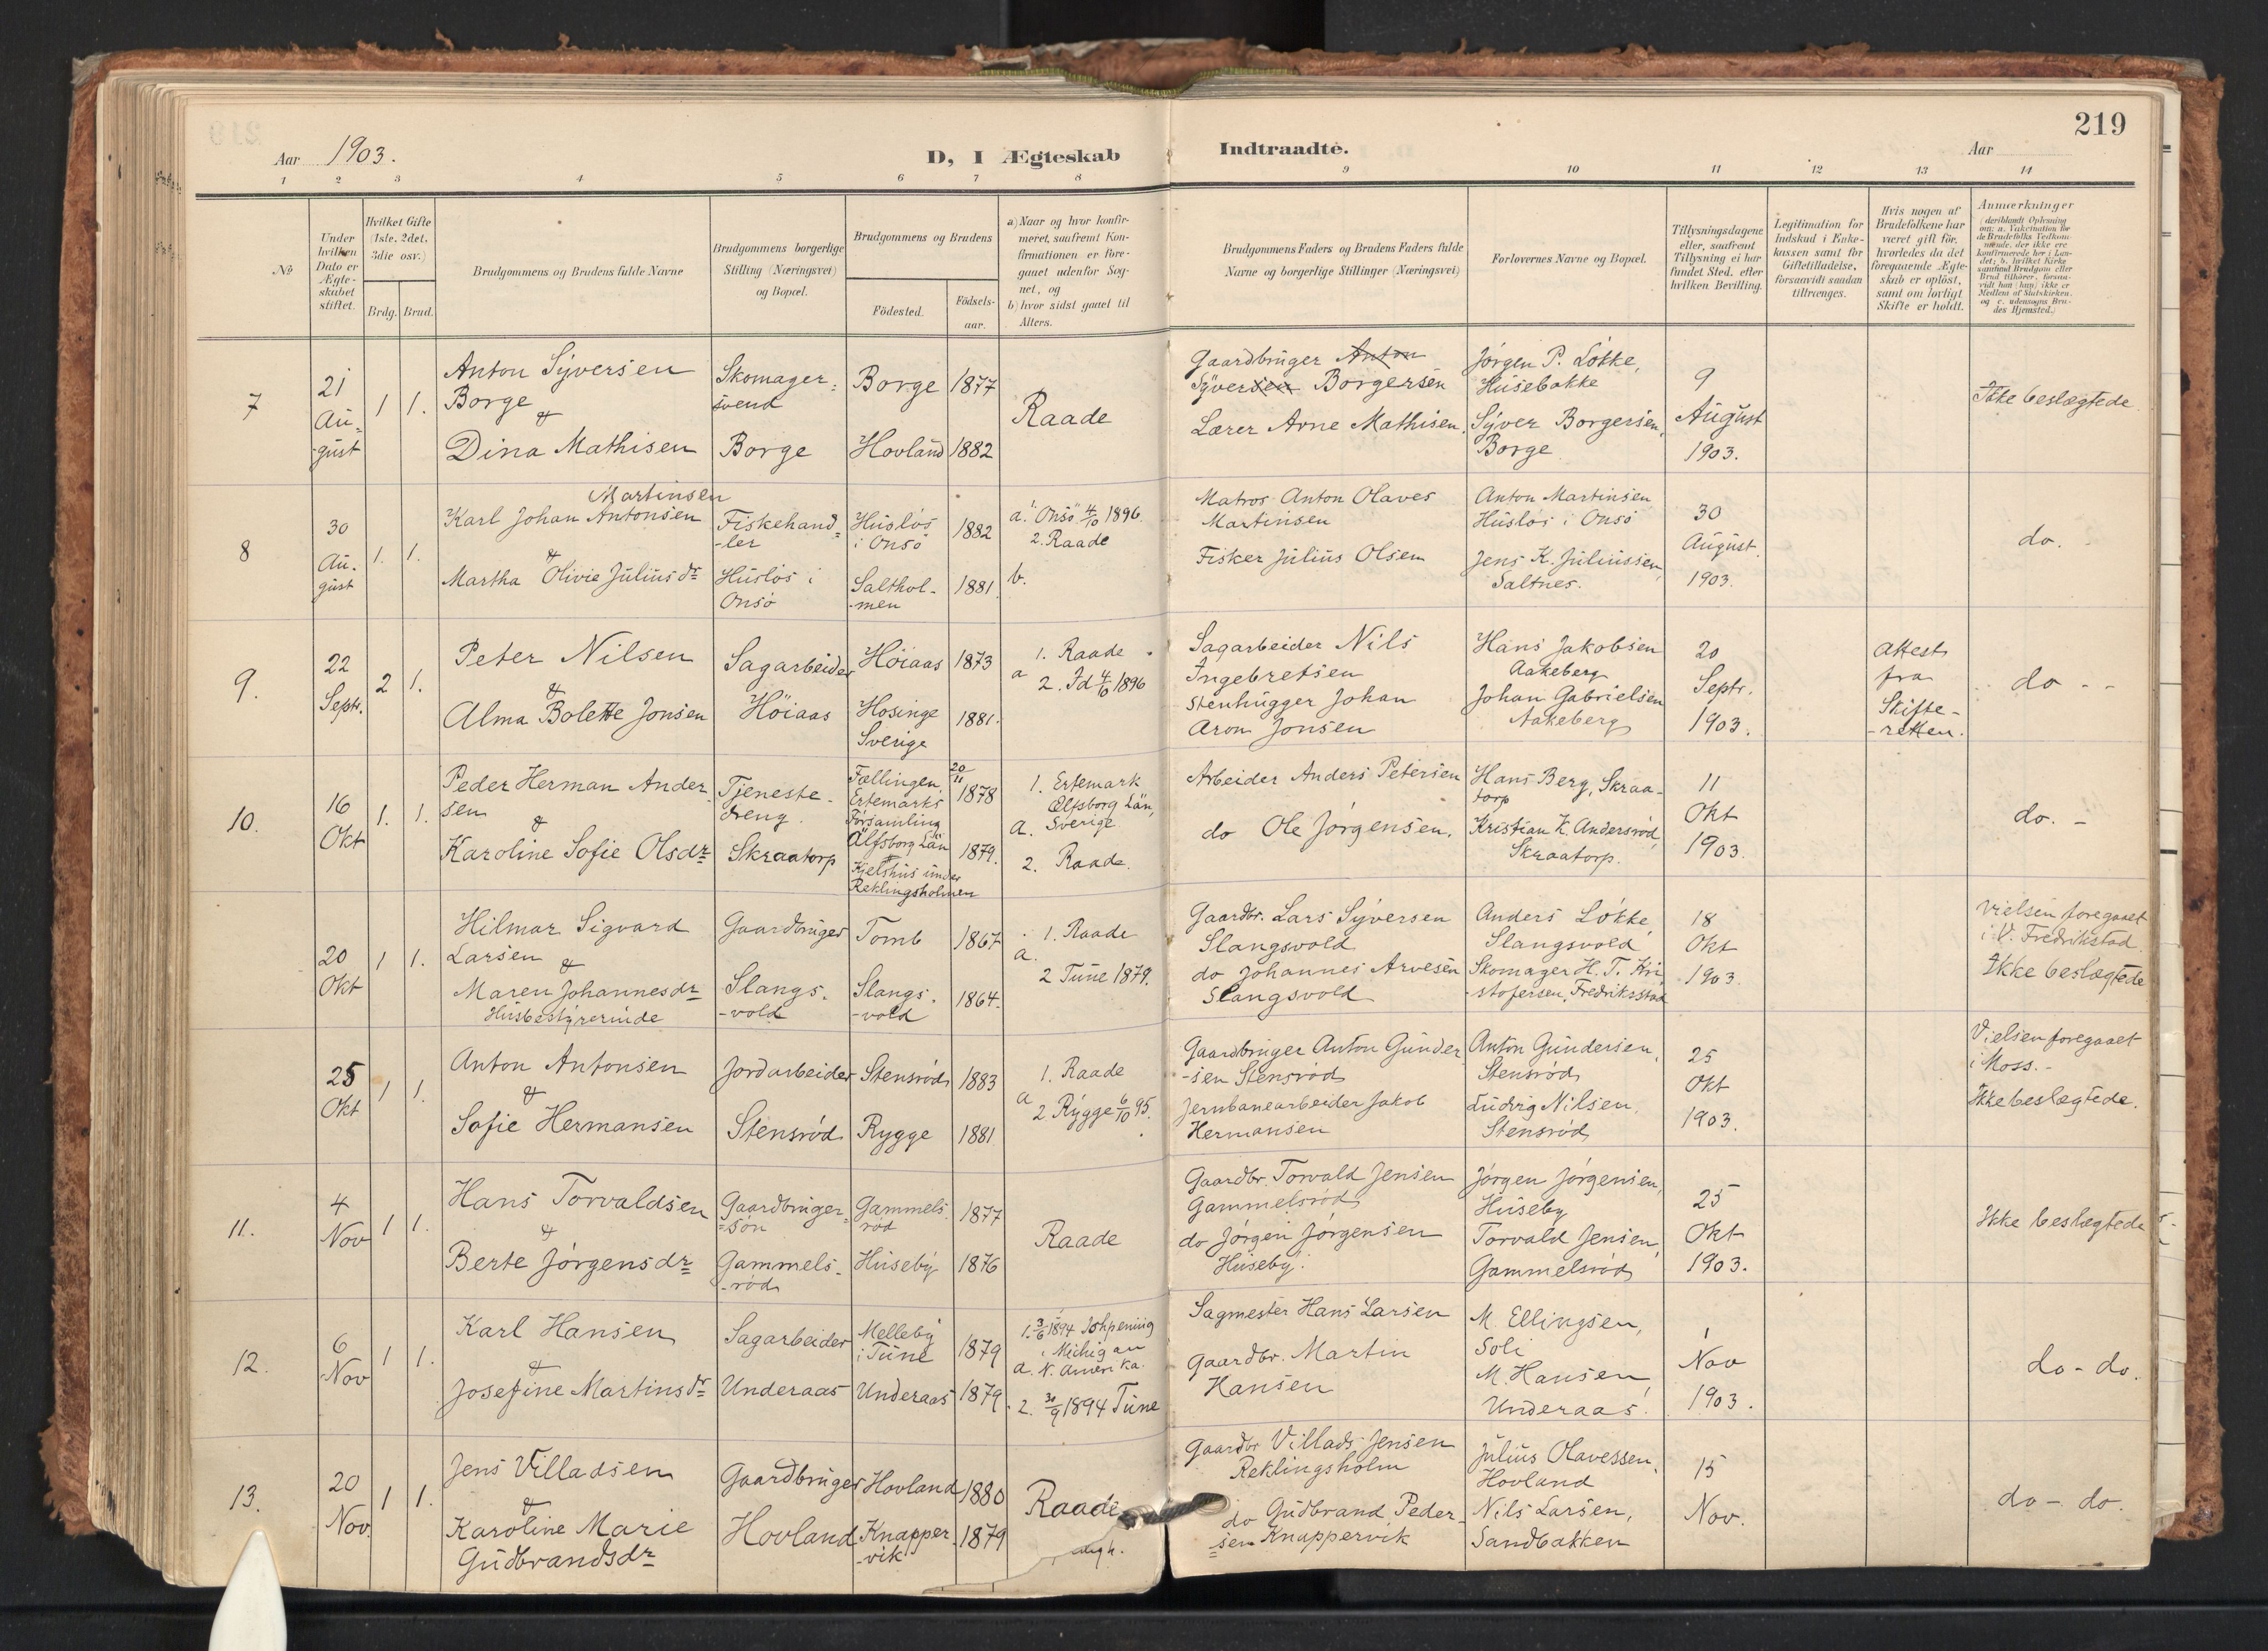 219
Aar 1903.
D, I Ægteskab
Indtraadte.
Aar
1 2 3 4 5 6 7 8 9 10 11 12 13 14
No
Under
hvilken
Dato er
Ægte-
skabet
stiftet.
Hvilket Gifte
(1ste, 2det,
3die osv.)
Brdg. Brud.
Brudgommens og Brudens fulde Navne
Brudgommens borgerlige
Stilling (Næringsvei)
og Bopæl.
Brudgommens og Brudens
Födested.
Födsels-
aar.
a) Naar og hvor konfir-
meret, saafremt Kon-
firmationen er fore-
gaaet udenfor Sog-
net, og
b) hvor sidst gaaet til
Alters.
Brudgommens Faders og Brudens Faders fulde
Navne og borgerlige Stillinger (Næringsvei)
Forlovernes Navne og Bopæl.
Tillysningsdagene
eller, saafremt
Tillysning ei har
fundet Sted, efter
hvilken Bevilling.
Legitimation for
Indskud i Enke-
kassen samt for
Giftetilladelse,
forsaavidt saadan
tiltrænges.
Hvis nogen af
Brudefolkene har
været gift för,
hvorledes da det
foregaaende Ægte-
skab er oplöst,
samt om lovligt
Skifte er holdt.
Anmærkninger
(deriblandt Oplysning
om: a. Vakcination for
de Brudefolks Vedkom-
mende, der ikke ere
konfirmerede her i Lan-
det; b. hvilket Kirke-
samfund Brudgom eller
Brud tilhører, forsaa-
vidt han (hun) ikke er
Medlem af Statskirken,
og c. udensogns Bru-
des Hjemsted.)
7
21
Au-
gust
1 1.
Anton Syversen
Borge
&
Dina Mathisen
Skomager-
svend
Borge
Borge 1877
Hovland 1882
Raade
Gaardbruger Anton
Syversen Borgersen
Lærer Arne Mathisen.
Jørgen P. Løkke,
Husebakke
Syver Borgersen,
Borge
9
August
1903.
Ikke beslægtede
8
30
Au-
gust
1. 1.
Martinsen
Karl Johan Antonsen
&
Martha Olivie Julius dr
Fiskehand-
-ler
Husløs i
Onsø
Husløs
i Onsø
1882
Salthol-
-men
1881.
a. 1. Onsø 4/10 1896.
2. Raade
b.
Matros Anton Olaves
Martinsen
Fisker Julius Olsen
Anton Martinsen
Husløs i Onsø
Jens K. Juliussen,
Saltnes.
30
August
1903.
do.
9.
22
Septr.
2 1.
Peter Nilsen
&
Alma Bolette Jonsen
Sagarbeider
Höiaas
Höiaas 1873
Hosinge
Sverige
1881.
1. Raade
a
2. Id 4/10 1896
Sagarbeider Nils
Ingebretsen
Stenhugger Johan
Aron Jonsen
Hans Jakobsen
Aakeberg
Johan Gabrielsen
Aakeberg
20
Septr.
1903.
Attest
fra
Skifte-
-retten.
do - -
10.
16
Okt
1. 1.
Peder Herman Ander-
sen
&
Karoline Sofie Olsdr
Tjeneste-
dreng.
Skraatorp
Fællingen,
Ertemarks
Församling
Älfsborg Län
20/11
1878
Kjelshus under
Reklingsholmen
1879.
1. Ertemark
Elfsborg Län,
a. Sverige
2. Raade.
Arbeider Anders Petersen
do Ole Jørgensen.
Hans Berg, Skraa-
torp
Kristian K. Andersrød,
Skraatorp.
11
Okt
1903.
do. -
20
Okt
1 1.
Hilmar Sigvard
Larsen
&
Maren Johannesdr
Husbestyrerinde
Gaardbruger
Slangs-
-vold
Tomb 1867
Slangs-
-vold
1864.
1. Raade
a.
2 Tune 1879.
Gaardbr. Lars Syversen
Slangsvold
do Johannes Arvesen
Slangsvold
Anders Løkke,
Slangsvold
Skomager H. T. Kri-
-stofersen, Fredriksstad
18
Okt
1903.
Vielsen foregaaet
i V. Fredrikstad.
Ikke beslægtede
25
Okt
1 1.
Anton Antonsen
&
Sofie Hermansen
Jordarbeider
Stensrød
Stensrød 1883
Rygge 1881
1. Raade
a
2. Rygge 6/10 95.
Gaardbruger Anton Gunder-
-sen Stensrød
Jernbanearbeider Jakob
Hermansen
Anton Gundersen,
Stensrød
Ludvig Nilsen,
Stensrød
25
Okt
1903.
Vielsen foregaaet
i Moss. -
Ikke beslægtede.
11.
4
Nov
1 1.
Hans Torvaldsen
&
Berte Jørgensdr
Gaardbruger-
-søn
Gammels-
-rød
Gammels-
rød
1877
Huseby 1876
Raade
Gaardbr. Torvald Jensen
Gammelsrød
do Jørgen Jørgensen
Huseby.
Jørgen Jørgensen,
Huseby
Torvald Jensen,
Gammelsrød
25
Okt
1903.
Ikke beslægtede
12.
6
Nov
1 1.
Karl Hansen
&
Josefine Martinsdr
Sagarbeider
Underaas
Melleby
i Tune
1879
Underaas 1879.
1. 3/6 1894 Ishpeming
i Michigan
a. N. Amerika.
2. 30/9 1894 Tune
Sagmester Hans Larsen
Gaardbr. Martin
Hansen
M. Ellingsen,
Soli
M. Hansen,
Underaas.
1
Nov
1903.
do - do.
13.
20
Nov.
1 1.
Jens Villadsen
&
Karoline Marie
Gudbrandsdr
Gaardbruger
Hovland
Hovland 1880
Knapper-
-vik
1879
Raade
Gaardbr Villads Jensen
Reklingsholm
do Gudbrand Peder-
-sen Knappervik
Julius Olavessen,
Hovland
Nils Larsen,
Sandbakken
15
Nov.
do - do.